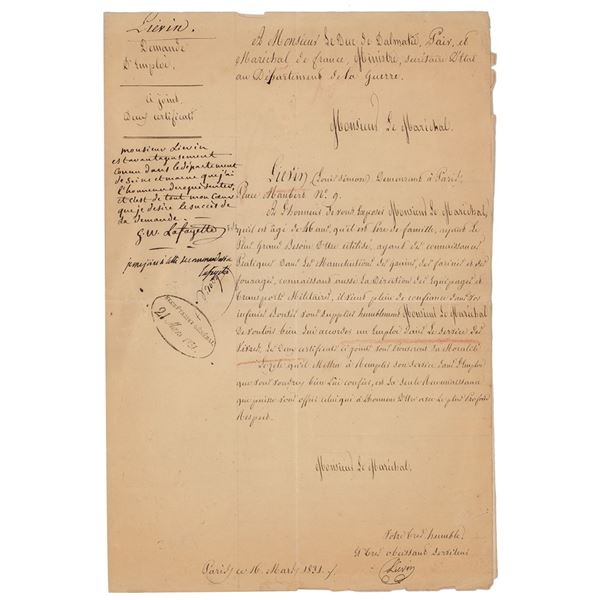 Liévin.
Demande
D'Emploi.
Ci joint
Deux certificats
monsieur Lievin
est avantageusement
connu dans le département
de Seine et marne que j'ai
l'honneur de représenter,
et c'est de tout mon cœur
que je desire le succès de
sa demande.
G. W. Lafayette
je me joins à cette recommandation
Lafayette
24 Mars 1831
A Monsieur Le Duc de Dalmatie, Pair, et
Maréchal de France, Ministre, Secrétaire D'Etat
au Département de la Guerre.
Monsieur Le Maréchal.
Liévin (Louis Simon) Demeurant à Paris,
Place Maubert N.º 9.
A L'honneur de vous Exposer Monsieur Le Maréchal,
qu'il est âgé de ans, qu'il est Père de famille, ayant le
Plus Grand Besoin D'être utilisé, ayant des connaissances
Pratiques dans les Manutentions des grains, des farines et des
fourages, connaissant aussi La Direction des Equipages et
transports Militaires, il vient plein de confiance dans vos
infinies Bontés vous supplier humblement Monsieur Le Maréchal
de vouloir bien Lui accorder un Emploi dans Le service des
Vivres, Les Deux certificats ci joints vous assureront sa Moralité.
Le zèle qu'il Mettra à Remplir son service dans l'Emploi
que vous voudrez bien Lui confier, est la seule Reconnaissance
que puisse vous offrir celui qui a L'honneur D'être avec le plus Profond
Respect.
Monsieur Le Maréchal.
Votre très humble,
Et très obéissant Serviteur
Liévin
Paris ce 16 Mars 1831.